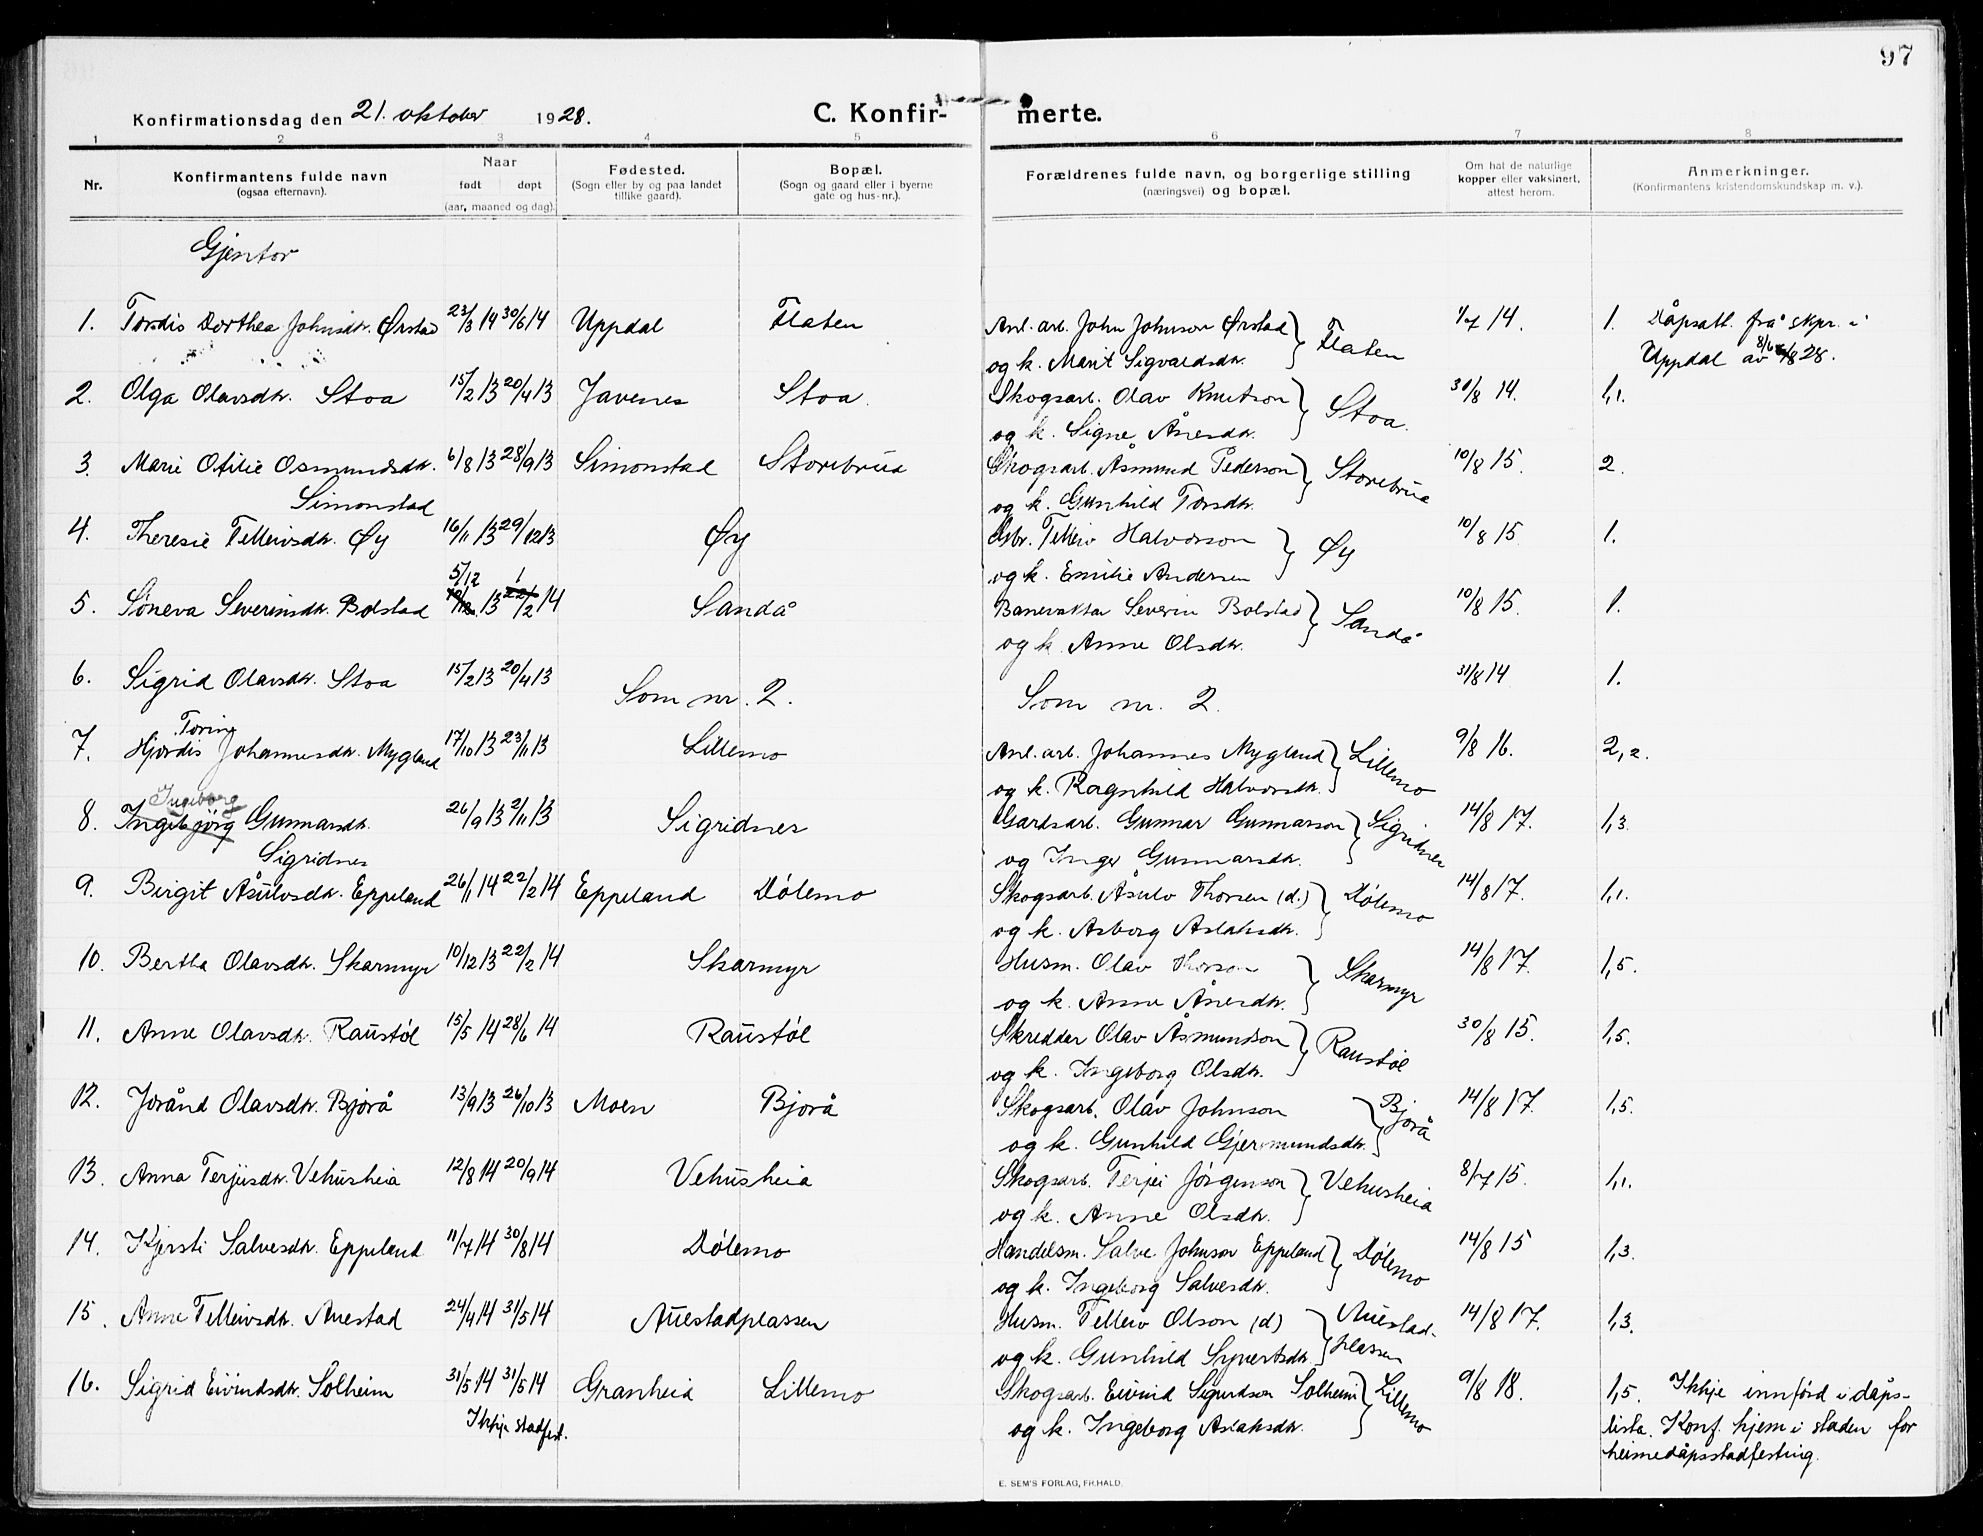 97
Konfirmationsdag den 21. oktober 1928.
C. Konfirmerte.
1 2 3 4 5 6 7 8
Nr.
Konfirmantens fulde navn
(ogsaa efternavn).
Naar
født døpt
(aar, maaned og dag).
Fødested.
(Sogn eller by og paa landet
tillike gaard).
Bopæl.
(Sogn og gaard eller i byerne
gate og hus-nr.).
Forældrenes fulde navn, og borgerlige stilling
(næringsvei) og bopæl.
Om hat de naturlige
kopper eller vaksinert,
attest herom.
Anmerkninger.
(Konfirmantens kristendomskundskap m. v.).
Gjentor
1. Tordis Dorthea Johnsdtr. Ørstad 23/3 14 30/6 14 Uppdal Flaten Anl. arb. John Johnson Ørstad } Flaten 1/7 14. 1. Dåpsatt. frå skpr. i
og k. Marit Sigvaldsdtr. Uppdal av 8/6 28.
2. Olga Olavsdtr. Stoa 15/2 13 20/4 13 Javenes Stoa Skogsarb. Olav Knutson } Stoa. 31/8 14. 1,1.
og k. Signe Ånesdtr.
3. Marie Otilie Osmundsdtr. 6/8 13 28/9 13 Simonstad Storebrua Skogsarb. Åsmund Pederson } Storebrua 10/8 15. 2.
Simonstad og k. Gunhild Torsdtr.
4. Theresie Telleivsdtr. Øy 16/11 13 29/12 13 Øy Gbr. Telleiv Halvorson } Øy 10/8 15 1.
og k. Emilie Andersen
5/12 1
5. Søneva Severinsdtr. Bolstad 13 22/2 14 Sandå Banevaktar Severin Bolstad } Sandå 10/8 15. 1.
og k. Anne Olsdtr.
6. Sigrid Olavsdtr. Stoa 15/2 13 20/4 13 Som nr. 2. Som nr. 2. 31/8 14 1.
Torine
7. Hjordis Johannesdtr. Mygland 17/10 13 23/11 13 Lillemo Anl. arb. Johannes Mygland } Lillemo 9/8 16. 2,2.
og k. Ragnhild Halvorsdtr.
Ingeborg
8. Ingebjørg Gunnarsdtr. 26/9 13 2/11 13 Sigridnes Gardsarb. Gunnar Gunnarson } Sigridnes 14/8 17. 1,3.
Sigridnes og Inger Gunnarsdtr.
9. Birgit Åsulvsdtr. Eppeland 26/1 14 22/2 14 Eppeland Dölemo Skogsarb. Åsulv Thorsen (d.) } Dölemo 14/8 17. 1,1.
og k. Asborg Aslaksdtr.
10. Bertha Olavsdtr. Skarmyr 10/12 13 22/2 14 Skarmyr Husm. Olav Thorson } Skarmyr 14/8 17. 1,5.
og k. Anne Ånesdtr.
11. Anne Olavsdtr. Raustöl 15/5 14 28/6 14 Raustöl Skredder Olav Åsmundson } Raustöl 30/8 15. 1,5.
og k. Ingeborg Olsdtr.
12. Jorånd Olavsdtr. Bjorå 13/9 13 26/10 13 Moen Bjorå Skogsarb. Olav Johnson } Bjorå 14/8 17. 1,5.
og k. Gunhild Gjermundsdtr.
13. Anna Terjeisdtr. Vehusheia 12/8 14 20/9 14 Vehusheia Skogsarb. Terjei Jörgenson } Vehusheia 8/7 15. 1,1.
og k. Anne Olsdtr.
14. Kjersti Salvesdtr. Eppeland 11/7 14 30/8 14 Dölemo Handelsm. Salve Johnson Eppeland } Dölemo 14/8 15 1,3.
og k. Ingeborg Salvesdtr.
15. Anne Telleivsdtr. Auestad 24/4 14 31/5 14 Auestadplassen Husm. Telleiv Olson (d) } Auestad- 14/8 17. 1,3.
og k. Gunhild Syvertsdtr. plassen
16. Sigrid Eivindsdtr. Solheim 31/5 14 31/5 14 Granheia Lillemo Skogsarb. Eivind Sigurdson Solheim } Lillemo 9/8 18. 1,5. Ikkje innförd i dåps-
Ikkje stadfest. og k. Ingeborg Aslaksdtr. lista. Konf. hjem i staden for
heimedåpsstadfesting.
E. SEM'S FORLAG, FR.HALD.